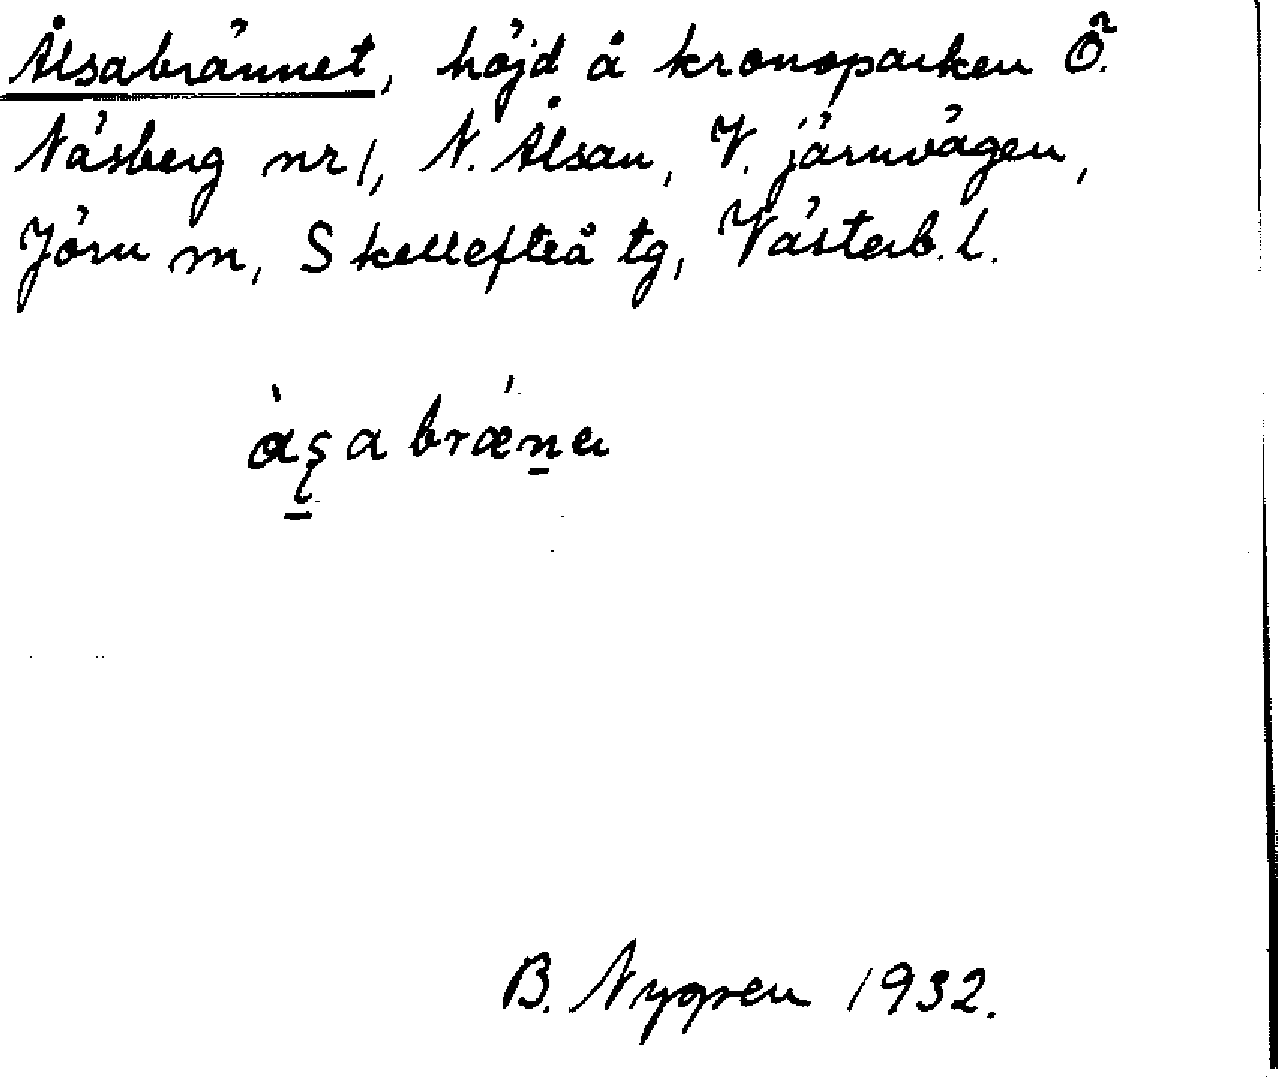 Ålsabrännet, höjd å kronoparken Ö.
Näsberg nr 1, N. Ålsan, V. järnvägen,
Jörn sn, Skellefteå tg, Västerb. l.
B. Nygren 1932.